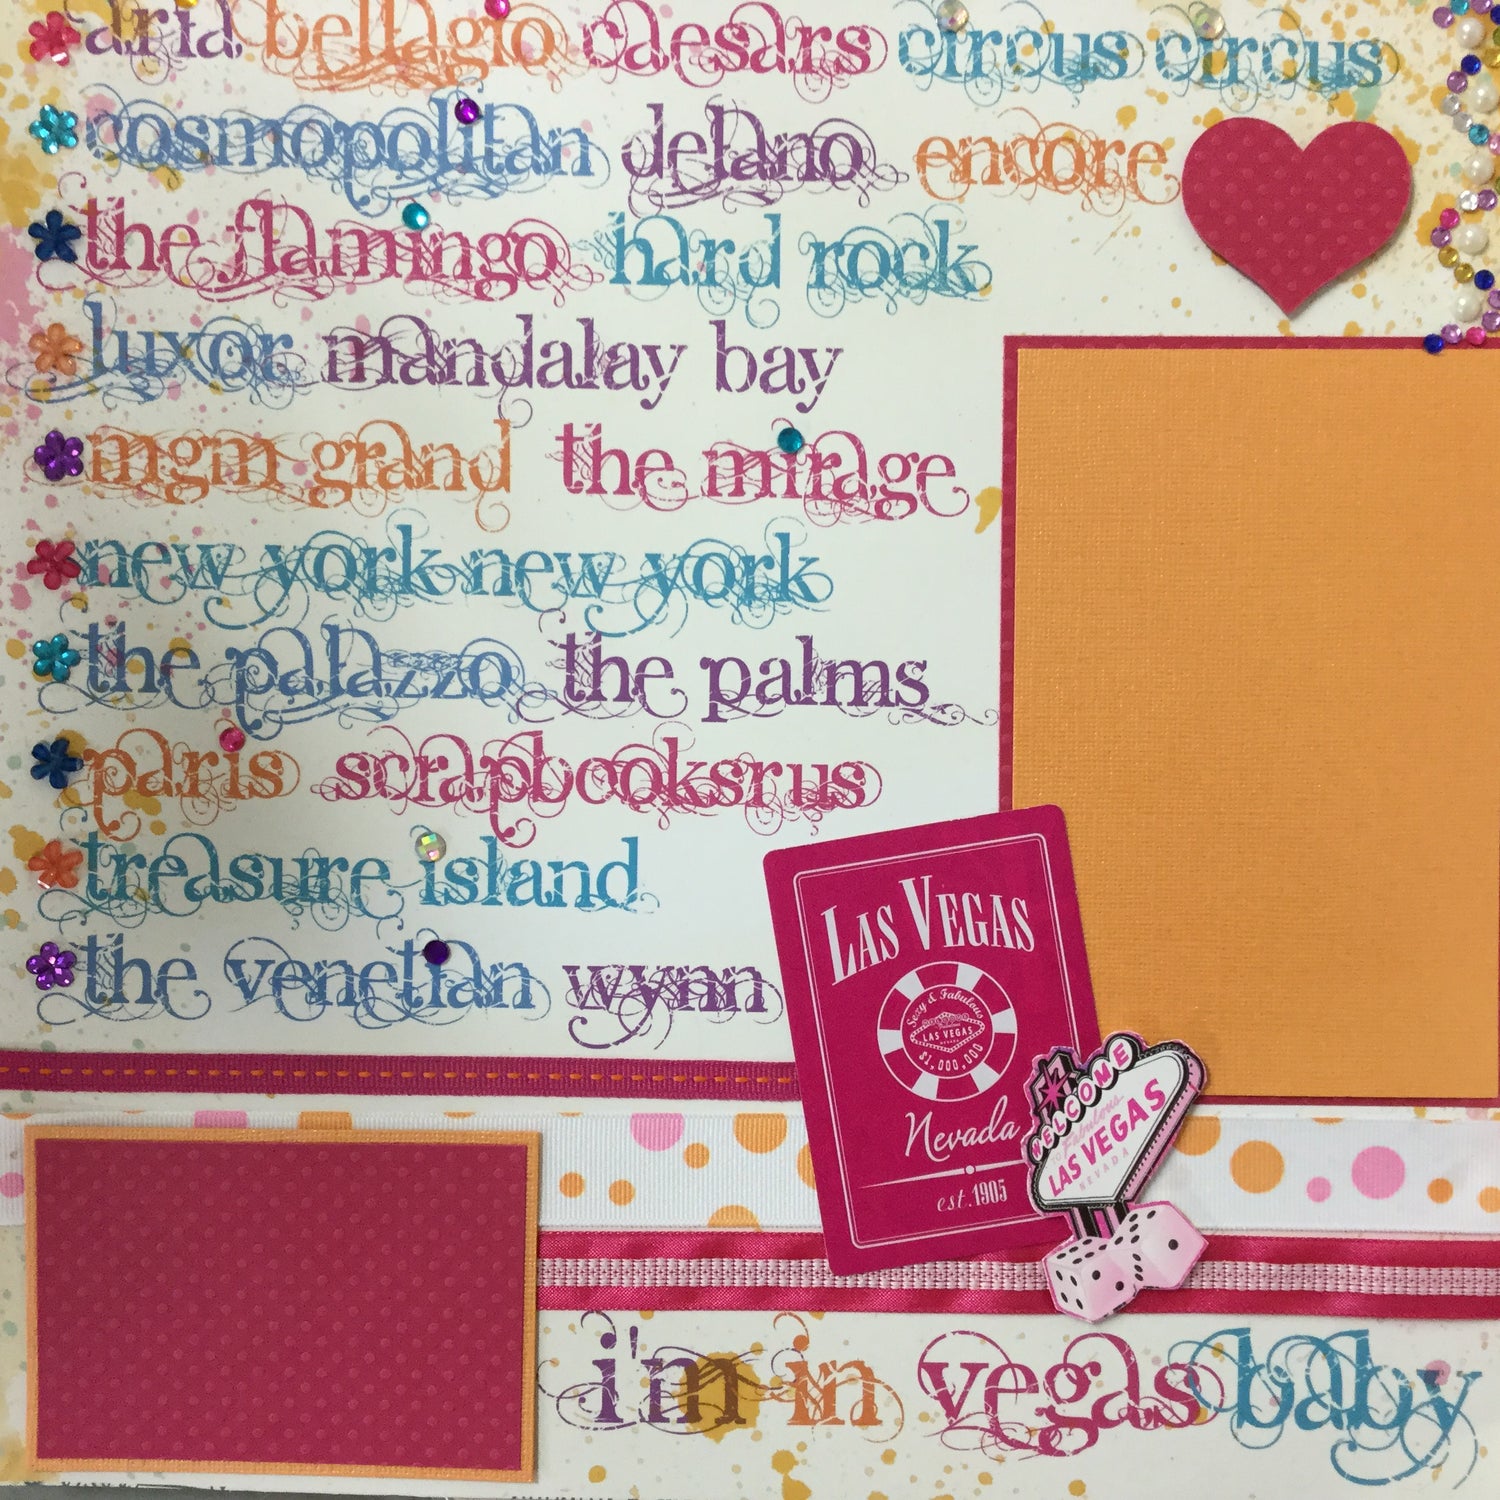 aria bellagio caesars circus circus
cosmopolitan delano encore
the flamingo hard rock
luxor mandalay bay
mgm grand the mirage
new york new york
the palazzo the palms
paris scrapbooksrus
treasure island
the venetian wynn
LAS VEGAS
Sexy & Fabulous
LAS VEGAS
$1,000,000
Nevada
est. 1905
WELCOME
TO Fabulous
LAS VEGAS
NEVADA
i'm in vegas baby